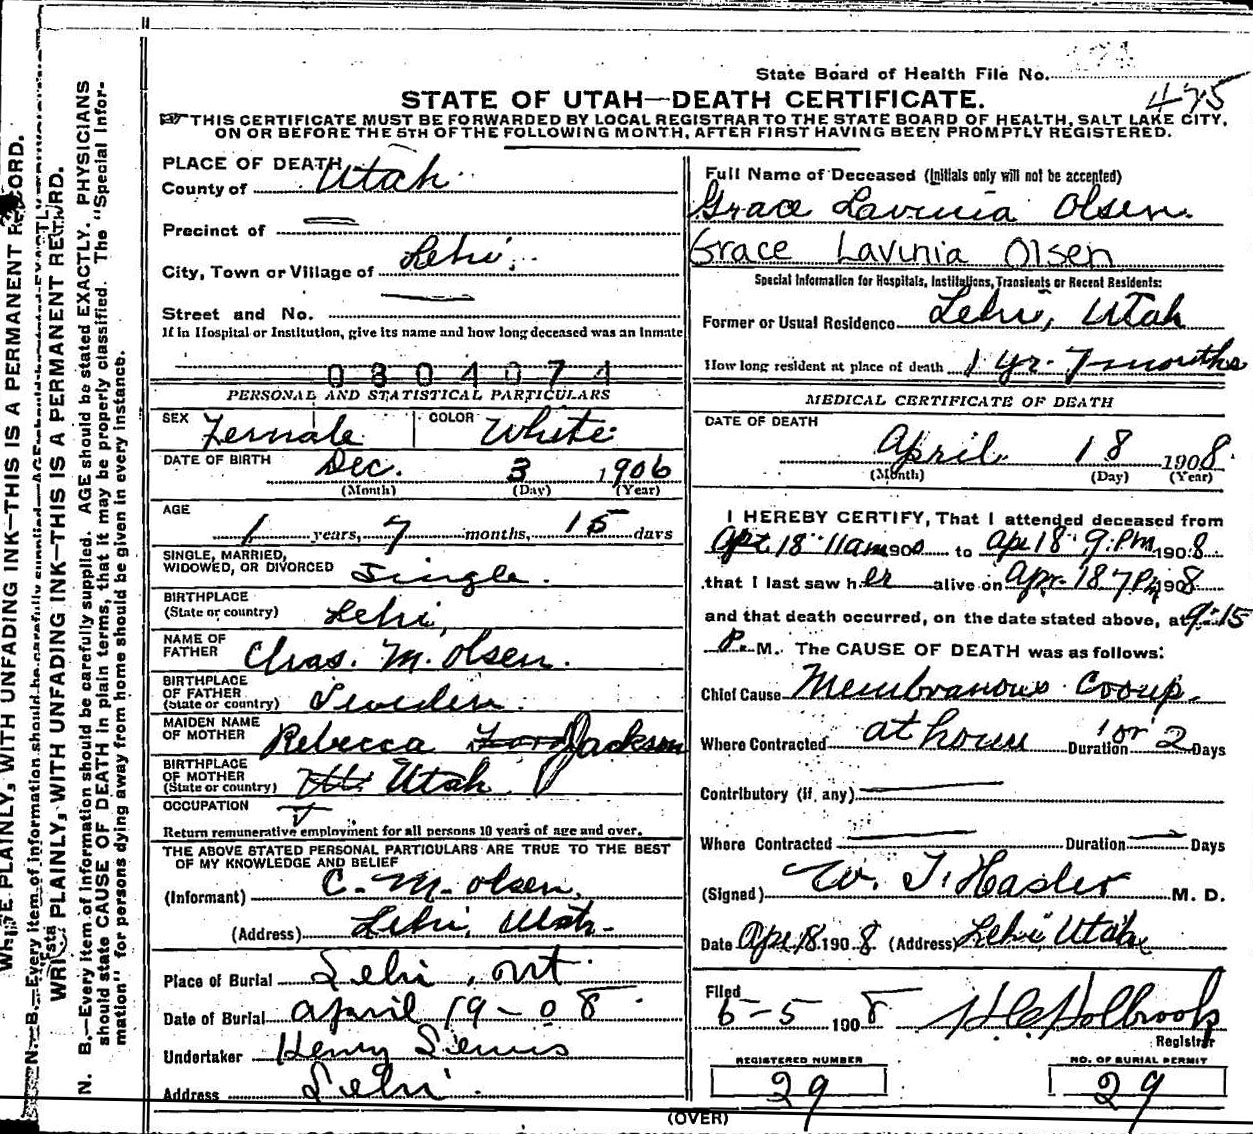 State Board of Health File No.
475
STATE OF UTAH—DEATH CERTIFICATE.
THIS CERTIFICATE MUST BE FORWARDED BY LOCAL REGISTRAR TO THE STATE BOARD OF HEALTH, SALT LAKE CITY,
ON OR BEFORE THE 5TH OF THE FOLLOWING MONTH, AFTER FIRST HAVING BEEN PROMPTLY REGISTERED.
PLACE OF DEATH
County of Utah
Precinct of
City, Town or Village of Lehi.
Street and No.
If in Hospital or Institution, give its name and how long deceased was an Inmate
0804074
PERSONAL AND STATISTICAL PARTICULARS
SEX Female COLOR White
DATE OF BIRTH Dec. 3 1906
(Month) (Day) (Year)
AGE
1 years, 7 months, 15 days
SINGLE, MARRIED,
WIDOWED, OR DIVORCED Single.
BIRTHPLACE
(State or country) Lehi,
NAME OF
FATHER Chas. M. Olsen.
BIRTHPLACE
OF FATHER
(State or country) Sweden.
MAIDEN NAME
OF MOTHER Rebecca Jackson
BIRTHPLACE
OF MOTHER
(State or country) Utah
OCCUPATION
Return remunerative employment for all persons 10 years of age and over.
THE ABOVE STATED PERSONAL PARTICULARS ARE TRUE TO THE BEST
OF MY KNOWLEDGE AND BELIEF
(Informant) C. M. Olsen,
(Address) Lehi, Utah.
Place of Burial Lehi, Ut.
Date of Burial April 19-08
Undertaker Henry
Address Lehi
Full Name of Deceased (Initials only will not be accepted)
Grace Lavinia Olsen.
Grace Lavinia Olsen
Special Information for Hospitals, Institutions, Transients or Recent Residents:
Former or Usual Residence Lehi, Utah
How long resident at place of death 1 yr. 7 months
MEDICAL CERTIFICATE OF DEATH
DATE OF DEATH
April 18 1908
(Month) (Day) (Year)
I HEREBY CERTIFY, That I attended deceased from
18 11am 190 to Apr 18 9 PM 1908
that I last saw her alive on Apr. 18 7 PM 1908
and that death occurred, on the date stated above, at 9:15
P. M. The CAUSE OF DEATH was as follows:
Chief Cause Membranous Croup.
Where Contracted at home Duration 1 or 2 Days
Contributory (if any)
Where Contracted Duration Days
(Signed) W. T. Hasler M. D.
Date Apr 18 1908 (Address) Lehi Utah
Filed
6-5 1908 Holbrook
Registrar
REGISTERED NUMBER
29
NO. OF BURIAL PERMIT
29
(OVER)
N. B.—Every item of information should be carefully supplied. AGE should be stated EXACTLY. PHYSICIANS
should state CAUSE OF DEATH in plain terms, that it may be properly classified. The "Special Infor-
mation" for persons dying away from home should be given in every instance.
PLAINLY, WITH UNFADING INK—THIS IS A PERMANENT RECORD.
PLAINLY, WITH UNFADING INK—THIS IS A PERMANENT RECORD.